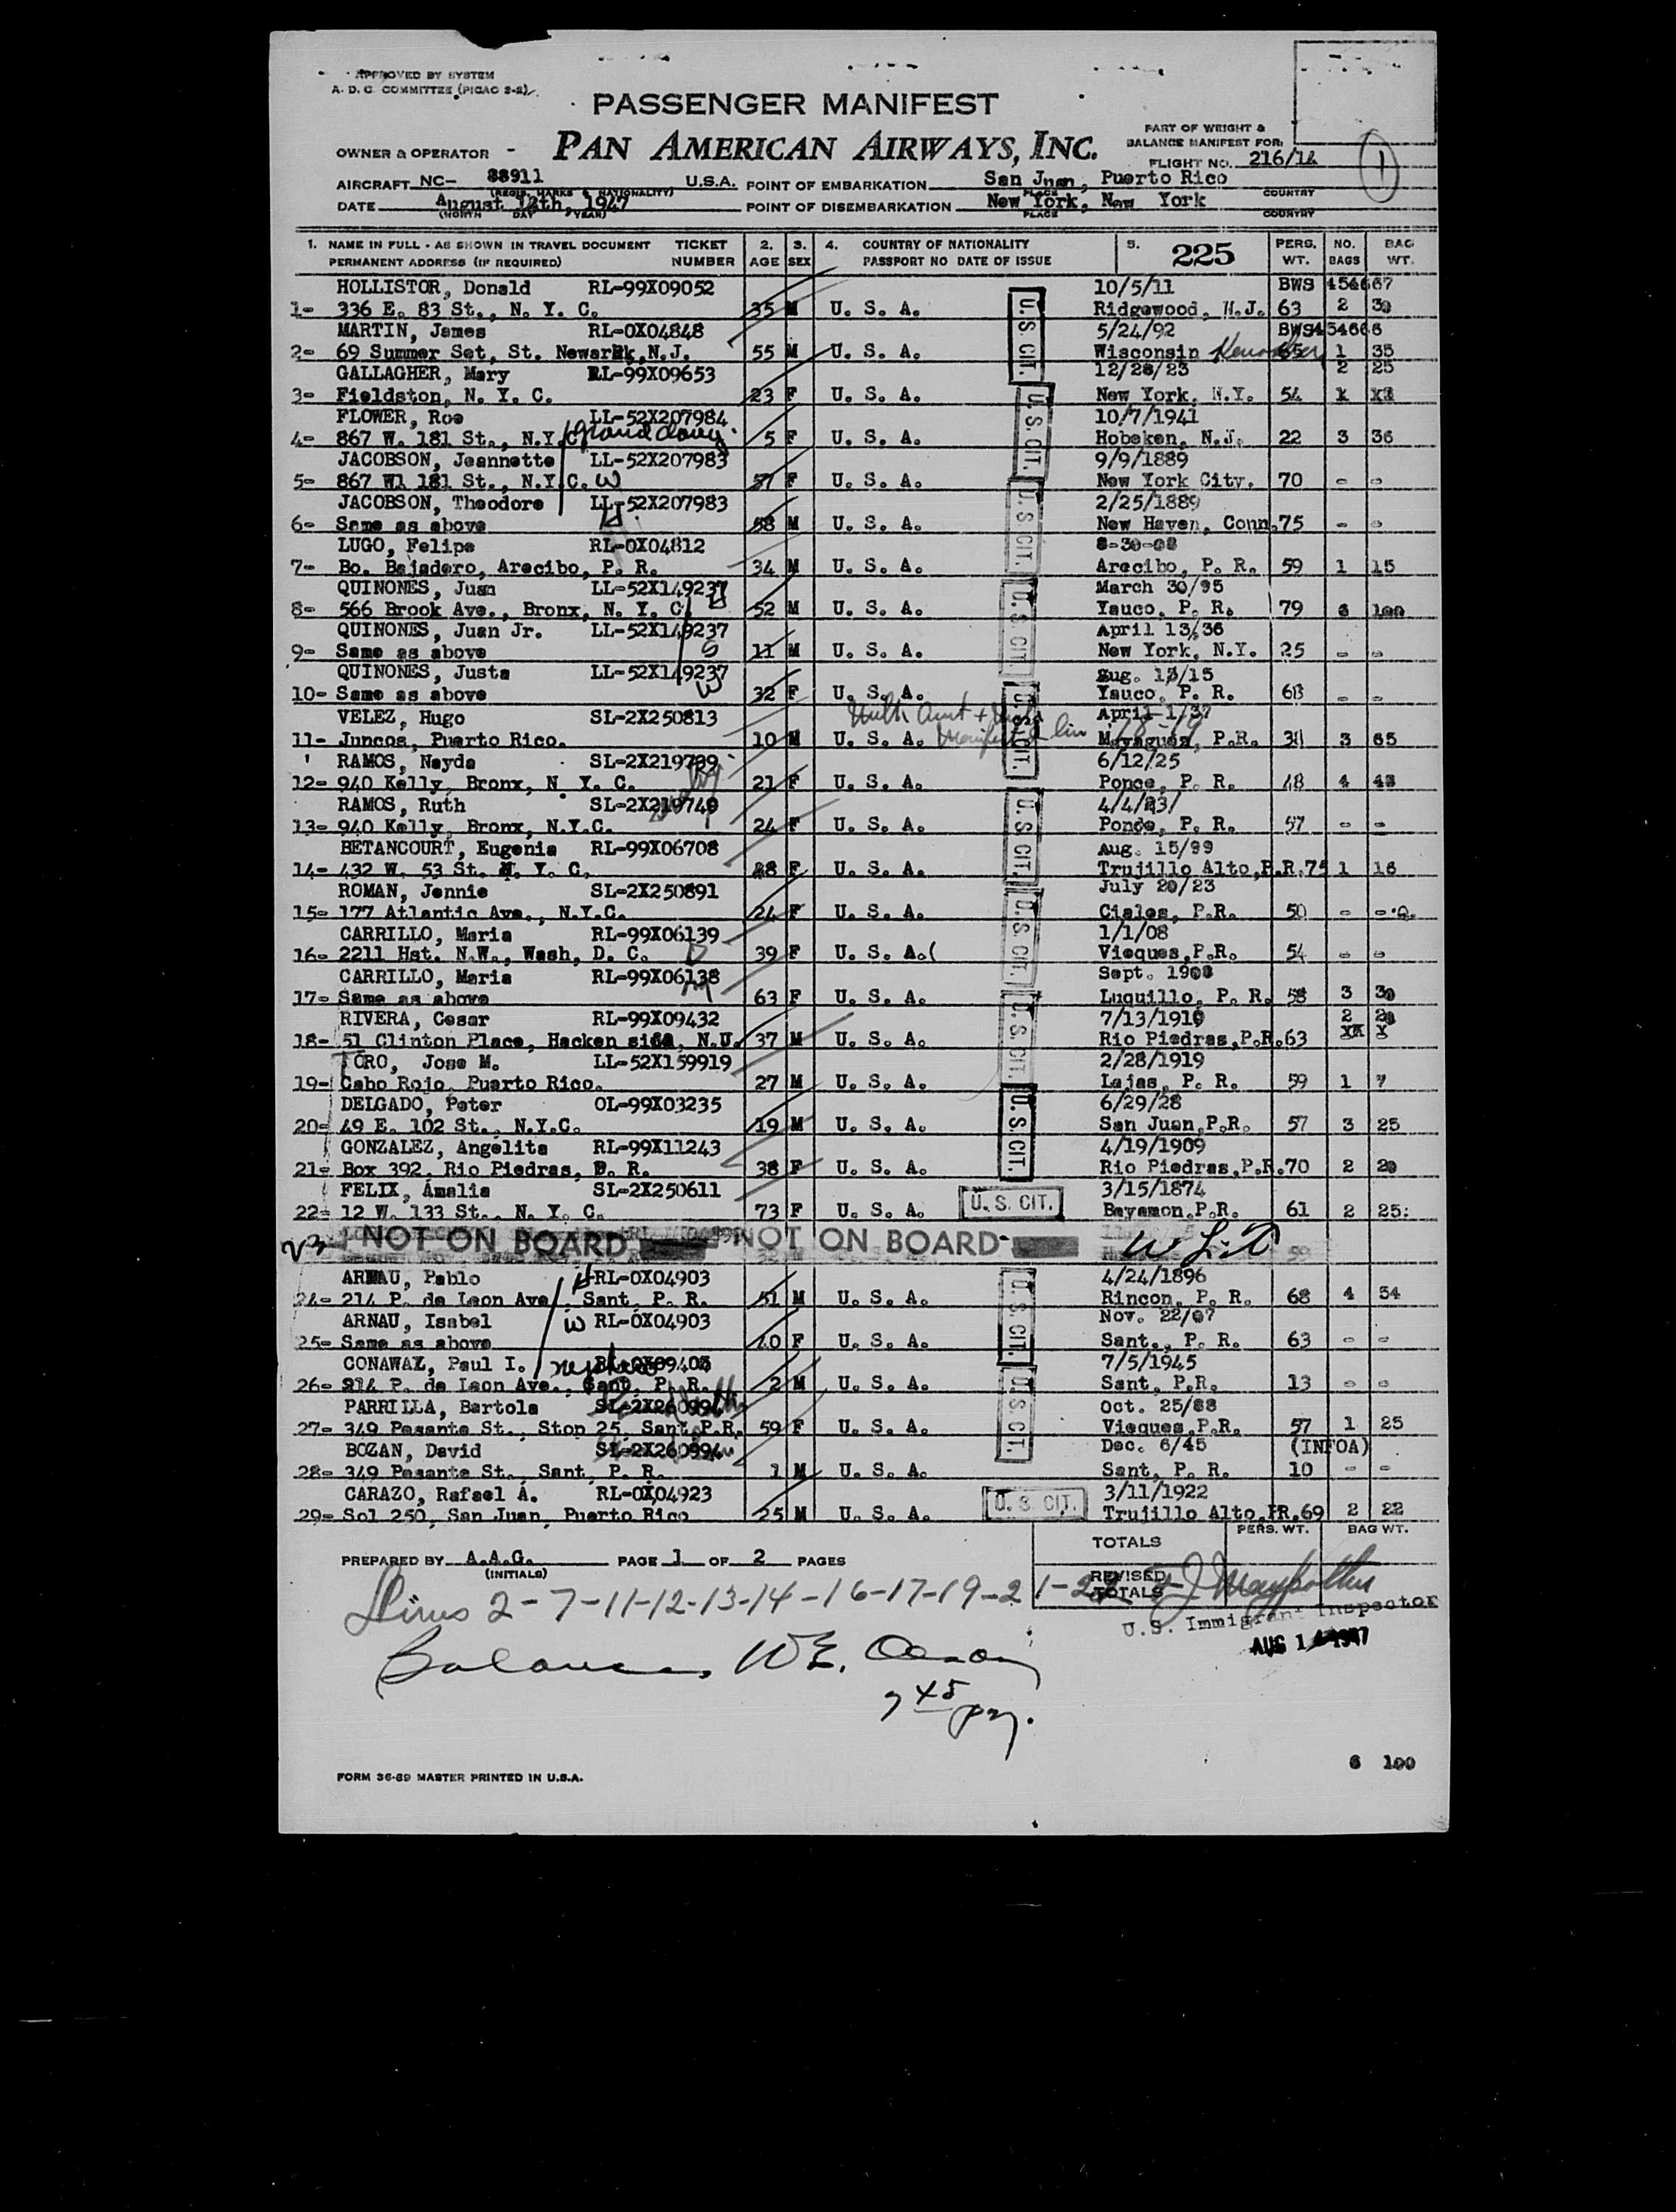 APPROVED BY SYSTEM
A. D. C. COMMITTEE (PICAO S-2)
PASSENGER MANIFEST
OWNER & OPERATOR - PAN AMERICAN AIRWAYS, INC.
PART OF WEIGHT &
BALANCE MANIFEST FOR:
FLIGHT NO. 216/12
1
AIRCRAFT NC- 88911 U.S.A. POINT OF EMBARKATION San Juan, Puerto Rico
(REGIS. MARKS & NATIONALITY) PLACE COUNTRY
DATE August 12th, 1947 POINT OF DISEMBARKATION New York, New York
(MONTH DAY YEAR) PLACE COUNTRY
1. NAME IN FULL - AS SHOWN IN TRAVEL DOCUMENT TICKET 2. 3. 4. COUNTRY OF NATIONALITY 5. 225 PERS. NO. BAG
PERMANENT ADDRESS (IF REQUIRED) NUMBER AGE SEX PASSPORT NO DATE OF ISSUE WT. BAGS WT.
HOLLISTOR, Donald RL-99X09052 10/5/11 BWS 454667
1- 336 E. 83 St., N. Y. C. 35 M U. S. A. Ridgewood, N.J. 63 2 30
MARTIN, James RL-0X04848 5/24/92 BWS454666
2- 69 Summer Set, St. Newark, N.J. 55 M U. S. A. Wisconsin 1 35
GALLAGHER, Mary RL-99X09653 12/28/23 2 25
3- Fieldston, N. Y. C. 23 F U. S. A. New York, N.Y. 54
FLOWER, Roe LL-52X207984 10/7/1941
4- 867 W. 181 St., N.Y.C. 5 F U. S. A. Hoboken, N.J. 22 3 36
JACOBSON, Jeannette LL-52X207983 9/9/1889
5- 867 Wl 181 St., N.Y.C. W 57 F U. S. A. New York City. 70 - -
JACOBSON, Theodore LL-52X207983 2/25/1889
6- Same as above H 58 M U. S. A. New Haven, Conn. 75 - -
LUGO, Felipe RL-0X04812 8-30-
7- Bo. Bajadero, Arecibo, P. R. 34 M U. S. A. Arecibo, P. R. 59 1 15
QUINONES, Juan LL-52X149237 March 30/95
8- 566 Brook Ave., Bronx, N. Y. C. H 52 M U. S. A. Yauco, P. R. 79 6 100
QUINONES, Juan Jr. LL-52X149237 April 13/36
9- Same as above S 11 M U. S. A. New York, N.Y. 25 - -
QUINONES, Justa LL-52X149237 Aug. 13/15
10- Same as above W 32 F U. S. A. Yauco, P. R. 68 - -
VELEZ, Hugo SL-2X250813 With Aunt + April 1/37
11- Juncos, Puerto Rico. 10 M U. S. A. Mayaguez, P.R. 3 65
RAMOS, Nayda SL-2X219739 6/12/25
12- 940 Kelly, Bronx, N. Y. C. 21 F U. S. A. Ponce, P. R. 48 4 43
RAMOS, Ruth SL-2X219740 4/4/23/
13- 940 Kelly, Bronx, N.Y.C. 24 F U. S. A. Ponce, P. R. 57 - -
BETANCOURT, Eugenia RL-99X06708 Aug. 15/99
14- 432 W. 53 St. N. Y. C. 48 F U. S. A. Trujillo Alto,P.R.75 1 16
ROMAN, Jennie SL-2X250891 July 20/23
15- 177 Atlantic Ave., N.Y.C. 24 F U. S. A. Ciales, P.R. 50 - -
CARRILLO, Maria RL-99X06139 1/1/08
16- 2211 Hst. N.W., Wash, D. C. D 39 F U. S. A.( Vieques,P.R. 54 - -
CARRILLO, Maria RL-99X06138 Sept.
17- Same as above M 63 F U. S. A. Luquillo, P. R. 58 3 30
RIVERA, Cesar RL-99X09432 7/13/1910 2 20
18- 51 Clinton Place, Hacken side, N.J. 37 M U. S. A. Rio Piedras,P.R.63
TORO, Jose M. LL-52X159919 2/28/1919
19- Cabo Rojo, Puerto Rico. 27 M U. S. A. Lajas, P. R. 59 1 7
DELGADO, Peter OL-99X03235 6/29/28
20- 49 E. 102 St., N.Y.C. 19 M U. S. A. San Juan,P.R. 57 3 25
GONZALEZ, Angelita RL-99X11243 4/19/1909
21- Box 392, Rio Piedras, P. R. 38 F U. S. A. Rio Piedras,P.R.70 2 20
FELIX, Amalia SL-2X250611 3/15/1874
22- 12 W. 133 St., N. Y. C. 73 F U. S. A. U. S. CIT. Bayamon,P.R. 61 2 25
23 NOT ON BOARD NOT ON BOARD
ARNAU, Pablo H RL-0X04903 4/24/1896
24- 214 P. de Leon Ave., Sant, P. R. 51 M U. S. A. Rincon, P. R. 68 4 54
ARNAU, Isabel W RL-0X04903 Nov. 22/07
25- Same as above 40 F U. S. A. Sant., P. R. 63 - -
CONAWAY, Paul I. nephew 7/5/1945
26- 214 P. de Leon Ave., Sant, P. R. 2 M U. S. A. Sant, P.R. 13 - -
PARRILLA, Bartola SL-2X260994 Oct. 25/88
27- 349 Pesante St., Stop 25, Sant,P.R. 59 F U. S. A. Vieques,P.R. 57 1 25
BOZAN, David SL-2X260994 Dec. 6/45 (INFOA)
28- 349 Pesante St., Sant, P. R. 1 M U. S. A. Sant, P. R. 10 - -
CARAZO, Rafael A. RL-0X04923 3/11/1922
29- Sol 250, San Juan, Puerto Rico 25 M U. S. A. U. S. CIT. Trujillo Alto,PR.69 2 22
PERS. WT. BAG WT.
TOTALS
PREPARED BY A.A.G. PAGE 1 OF 2 PAGES
(INITIALS)
REVISED
TOTALS
2-7-11-12-13-14-16-17-19-21-
U.S. Immigrant Inspector
AUG 1 1947
Balance, W E.
7 45 pm.
6 100
FORM 36-69 MASTER PRINTED IN U.S.A.